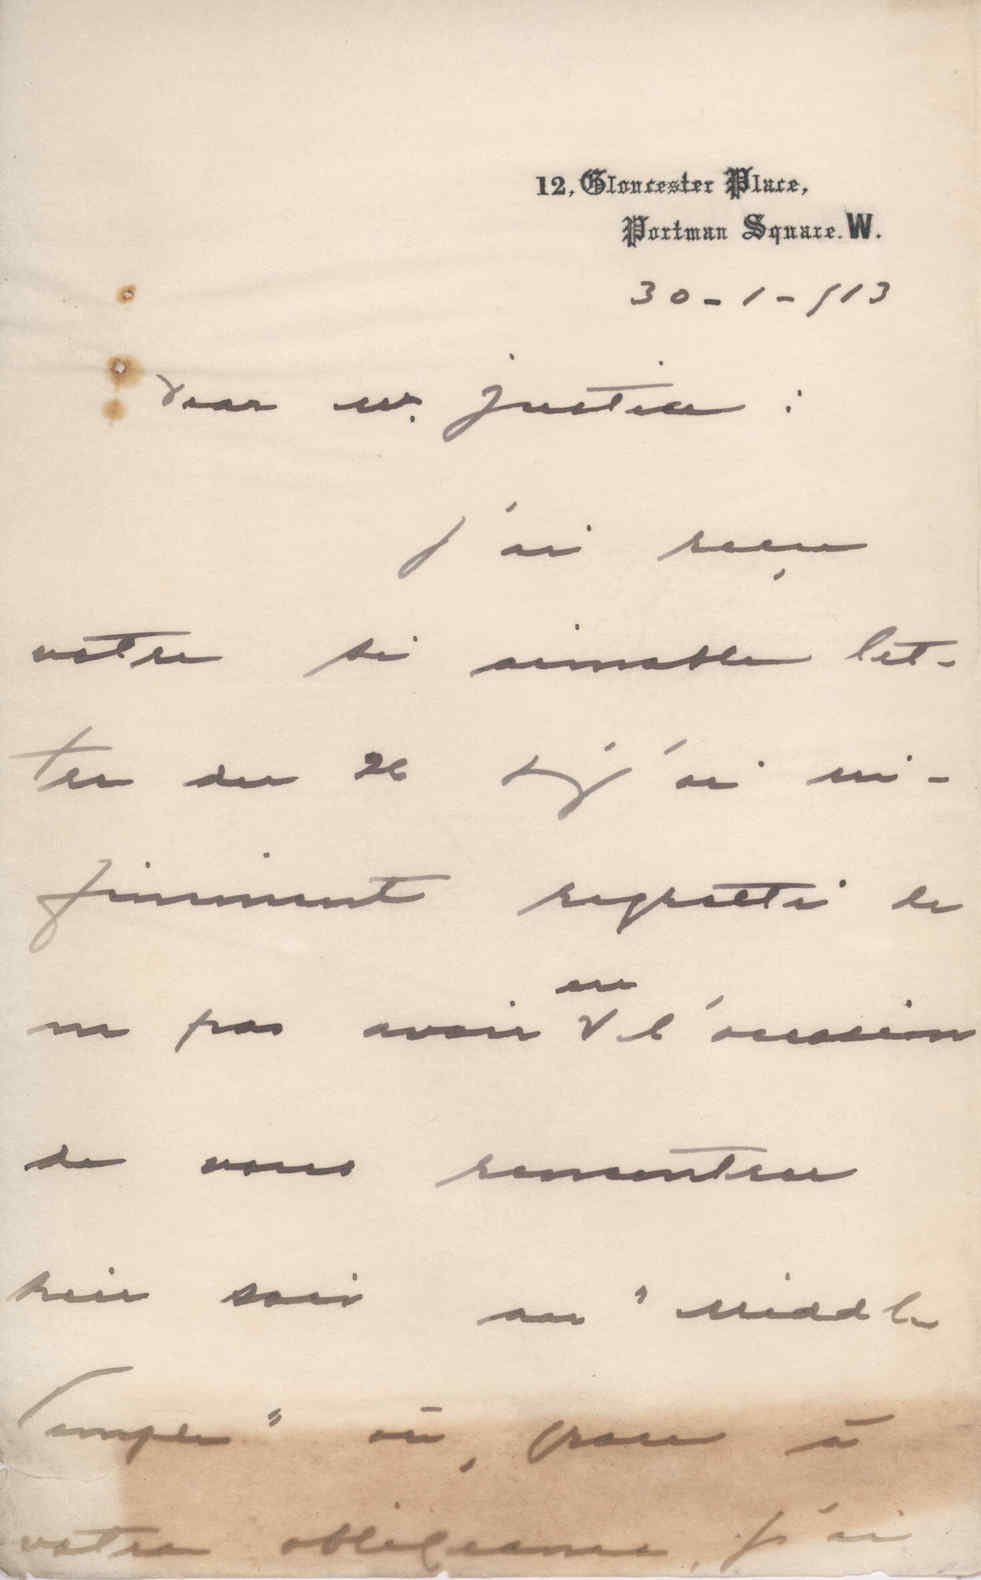 12, Gloucester Place,
Portman Square. W.
30-1-913
Dear Mr. Justice :
J'ai reçu
votre si aimable let-
tre du 26 & j'ai in-
finiment regretté de
eu
ne pas avoir V l'occasion
de vous rencontrer
hier soir au "Middle
Temple" où, grace à
votre obligeance, j'ai